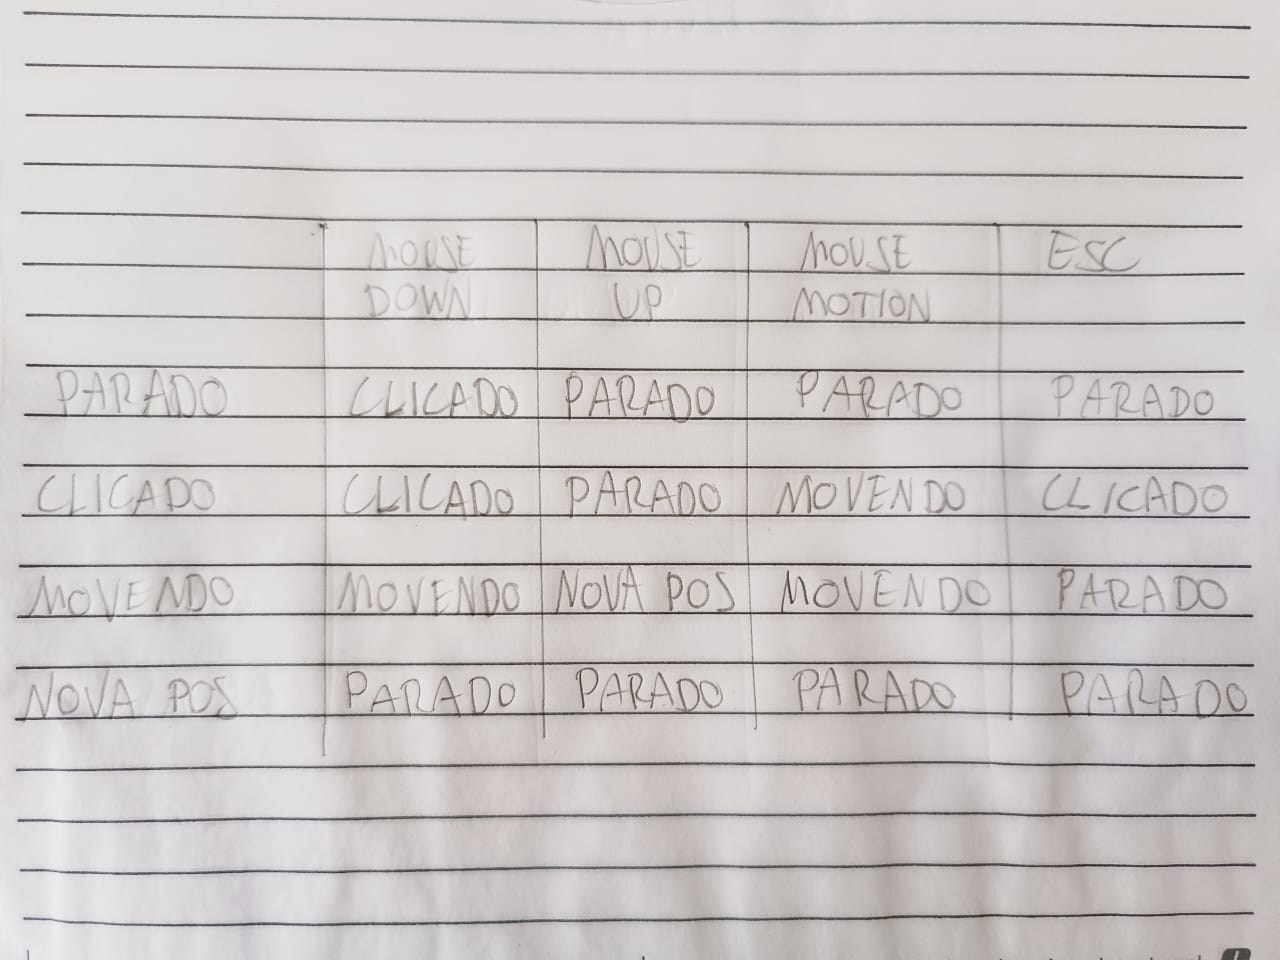 MOUSE MOUSE MOUSE ESC
DOWN UP MOTION
PARADO CLICADO PARADO PARADO PARADO
CLICADO CLICADO PARADO MOVENDO CLICADO
MOVENDO MOVENDO NOVA POS MOVENDO PARADO
NOVA POS PARADO PARADO PARADO PARADO